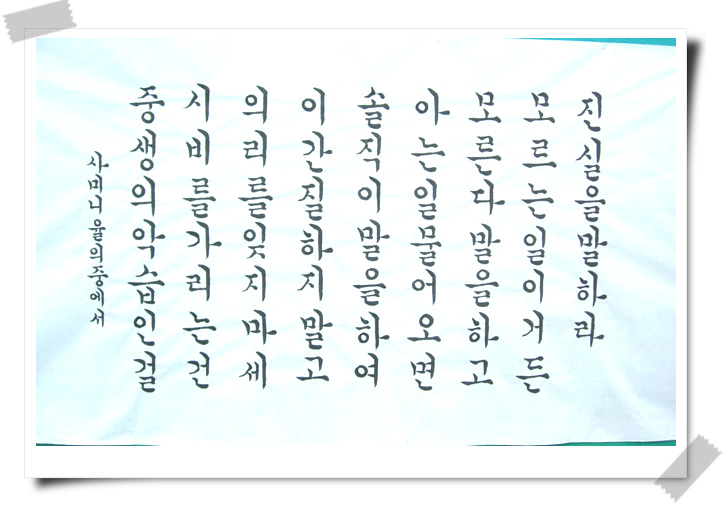 진실을말하라
모르는일이거든
모른다말을하고
아는일물어오면
솔직이말을하여
이간질하지말고
의리를잊지마세
시비를가리는건
중생의악습인걸
사미니율의중에서